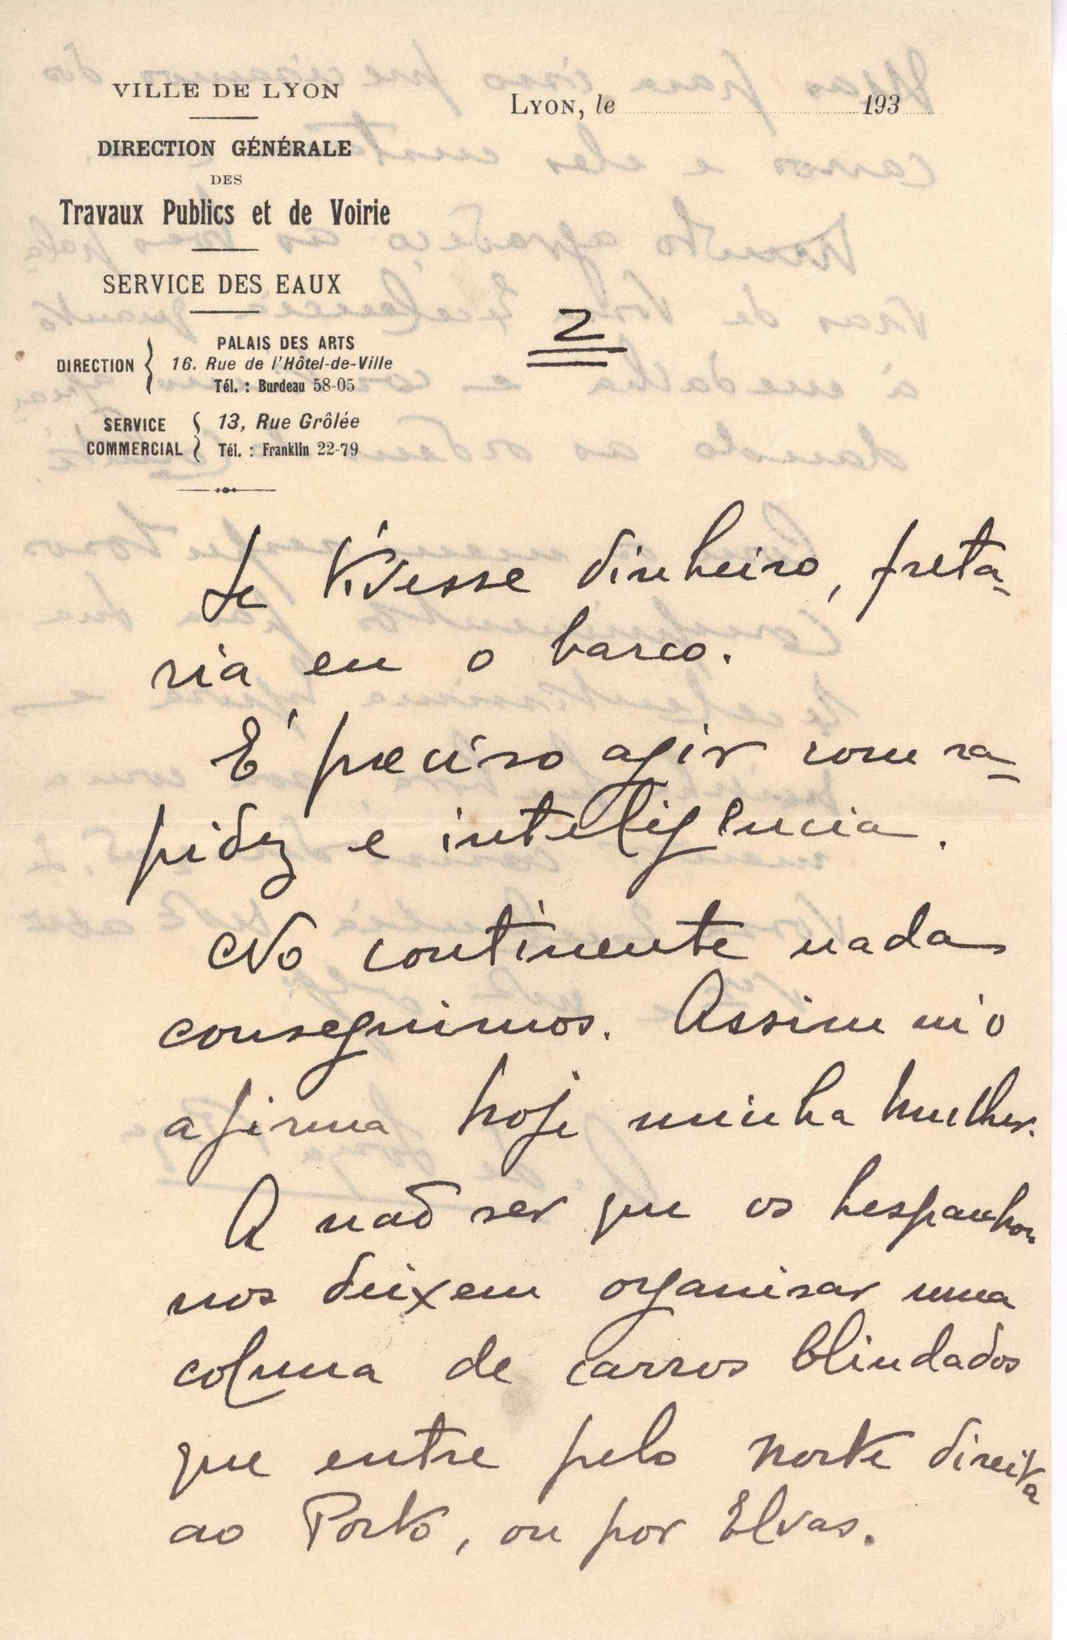 VILLE DE LYON
DIRECTION GÉNÉRALE
DES
Travaux Publics et de Voirie
SERVICE DES EAUX
DIRECTION { PALAIS DES ARTS
16. Rue de l'Hôtel-de-Ville
Tél. : Burdeau 58-05
SERVICE COMMERCIAL { 13, Rue Grôlée
Tél. : Franklin 22-79
LYON, le 193
2
Se tivesse dinheiro, freta-
ria eu o barco.
É preciso agir com ra-
pidez e inteligencia.
No continente nada
conseguimos. Assim m'o
afirma hoje minha mulher.
A não ser que os hespanhoes
nos deixem organisar uma
coluna de carros blindados
que entre pelo norte direita
ao Porto, ou por Elvas.